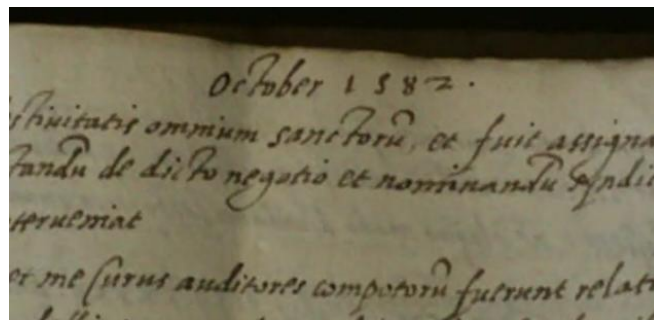 October 1582.
stiuitatis omnium sanctorū, et fuit assigna
tandū de dicto negotio et nominandū Syndic
terueniat
et me Surus auditores compotorū fuerunt relati